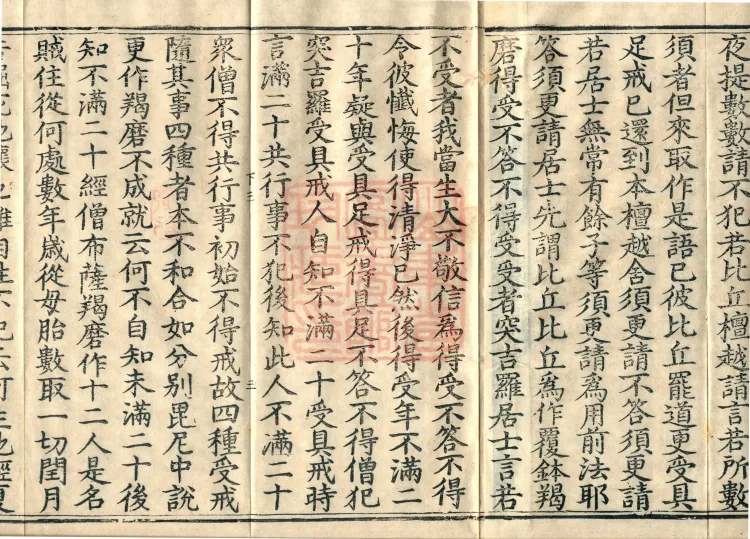 夜提數數請不犯若比丘檀越請言若所數
須者但來取作是語已彼比丘罷道更受具
足戒已還到本檀越舍須更請不答須更請
若居士無常有餘子等須更請為用前法耶
答須更請居士先謂比丘比丘為作覆鉢羯
磨得受不答不得受受者突吉羅居士言若
不受者我當生大不敬信為得受不答不得
令彼懺悔使得清淨已然後得受年不滿二
十年疑與受具足戒得具足不答不得僧犯
突吉羅受具戒人自知不滿二十受具戒時
言滿二十共行事不犯後知此人不滿二十
下三
三
眾僧不得共行事初始不得戒故四種受戒
隨其事四種者本不和合如分別毘尼中說
更作羯磨不成就云何不自知未滿二十後
知不滿二十經僧布薩羯磨作十二人是名
賊住從何處數年歲從母胎數取一切閏月